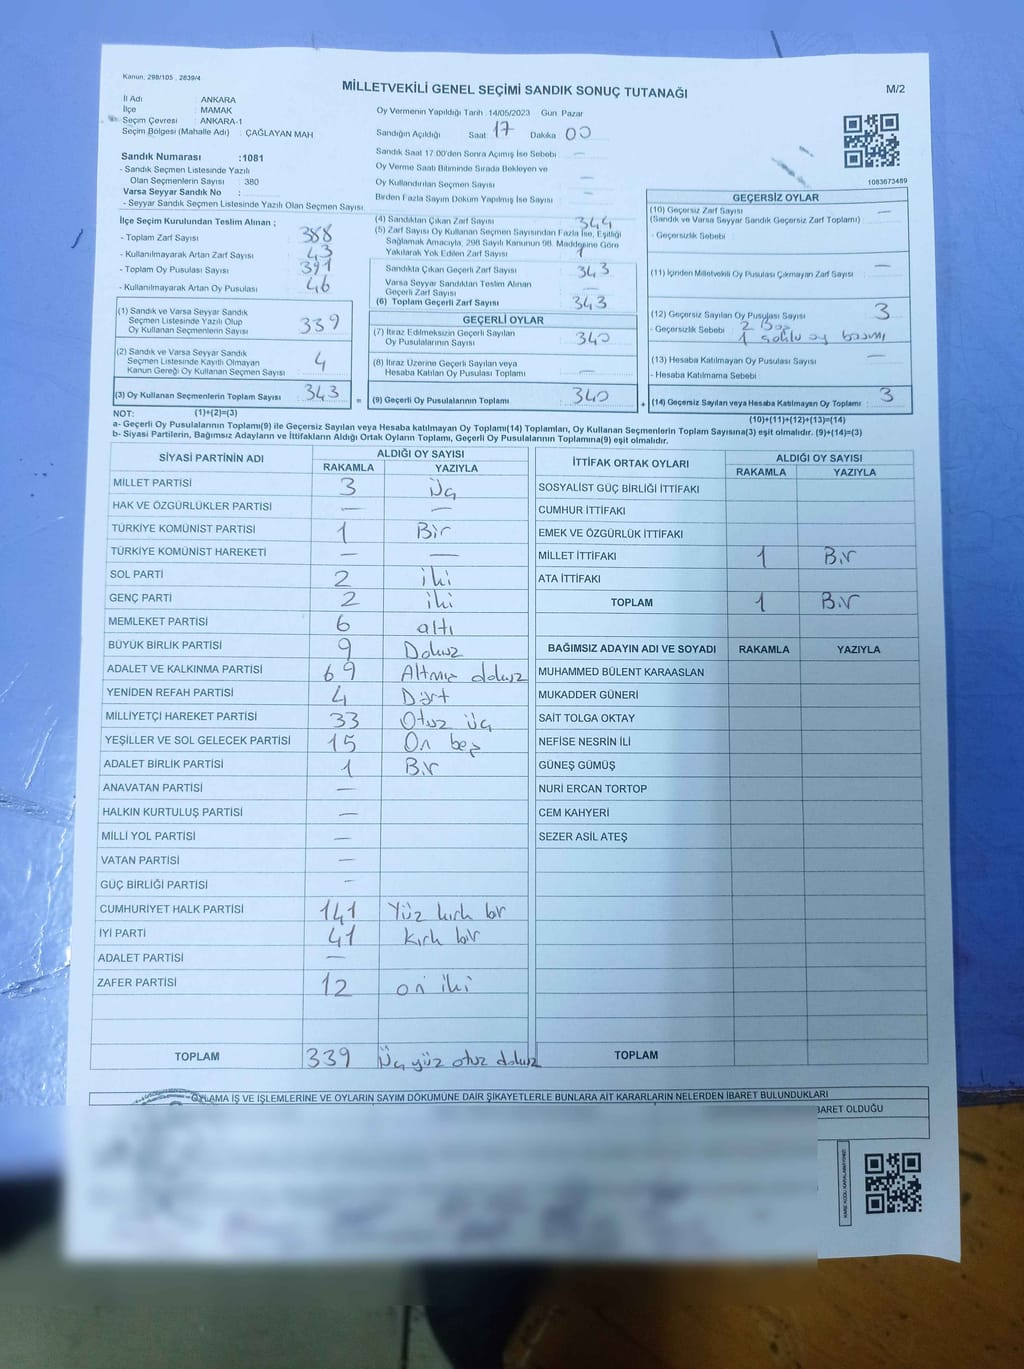 Kanun: 298/105 , 2839/4
MİLLETVEKİLİ GENEL SEÇİMİ SANDIK SONUÇ TUTANAĞI
M/2
İl Adı : ANKARA
İlçe : MAMAK
Seçim Çevresi : ANKARA-1
Seçim Bölgesi (Mahalle Adı) : ÇAĞLAYAN MAH
Sandık Numarası :1081
- Sandık Seçmen Listesinde Yazılı
Olan Seçmenlerin Sayısı : 380
Varsa Seyyar Sandık No :
- Seyyar Sandık Seçmen Listesinde Yazılı Olan Seçmen Sayısı
İlçe Seçim Kurulundan Teslim Alınan ;
- Toplam Zarf Sayısı 388
- Kullanılmayarak Artan Zarf Sayısı 43
- Toplam Oy Pusulası Sayısı 391
- Kullanılmayarak Artan Oy Pusulası 46
(1) Sandık ve Varsa Seyyar Sandık
Seçmen Listesinde Yazılı Olup
Oy Kullanan Seçmenlerin Sayısı 339
(2) Sandık ve Varsa Seyyar Sandık
Seçmen Listesinde Kayıtlı Olmayan
Kanun Gereği Oy Kullanan Seçmen Sayısı 4
(3) Oy Kullanan Seçmenlerin Toplam Sayısı : 343
Oy Vermenin Yapıldığı Tarih : 14/05/2023 Gün Pazar
Sandığın Açıldığı Saat 17 Dakika 00
Sandık Saat 17.00'den Sonra Açımış İse Sebebi : —
Oy Verme Saati Bitiminde Sırada Bekleyen ve
Oy Kullandırılan Seçmen Sayısı —
Birden Fazla Sayım Döküm Yapılmış İse Sayısı : —
(4) Sandıktan Çıkan Zarf Sayısı 344
(5) Zarf Sayısı Oy Kullanan Seçmen Sayısından Fazla İse, Eşitliği
Sağlamak Amacıyla, 298 Sayılı Kanunun 98. Maddesine Göre
Yakılarak Yok Edilen Zarf Sayısı 1
Sandıkta Çıkan Geçerli Zarf Sayısı : 343
Varsa Seyyar Sandıktan Teslim Alınan
Geçerli Zarf Sayısı —
(6) Toplam Geçerli Zarf Sayısı 343
GEÇERLİ OYLAR
(7) İtiraz Edilmeksizin Geçerli Sayılan
Oy Pusulalarının Sayısı : 340
(8) İtiraz Üzerine Geçerli Sayılan veya
Hesaba Katılan Oy Pusulası Toplamı : —
= (9) Geçerli Oy Pusulalarının Toplamı : 340 +
1083673469
GEÇERSİZ OYLAR
(10) Geçersiz Zarf Sayısı —
(Sandık ve Varsa Seyyar Sandık Geçersiz Zarf Toplamı) :
- Geçersizlik Sebebi :
(11) İçinden Milletvekili Oy Pusulası Çıkmayan Zarf Sayısı : —
(12) Geçersiz Sayılan Oy Pusulası Sayısı : 3
- Geçersizlik Sebebi : 2 Boş
1 oy
(13) Hesaba Katılmayan Oy Pusulası Sayısı : —
- Hesaba Katılmama Sebebi :
(14) Geçersiz Sayılan veya Hesaba Katılmayan Oy Toplamı : 3
NOT: (1)+(2)=(3)
(10)+(11)+(12)+(13)=(14)
a- Geçerli Oy Pusulalarının Toplamı(9) ile Geçersiz Sayılan veya Hesaba katılmayan Oy Toplamı(14) Toplamları, Oy Kullanan Seçmenlerin Toplam Sayısına(3) eşit olmalıdır. (9)+(14)=(3)
b- Siyasi Partilerin, Bağımsız Adayların ve İttifakların Aldığı Ortak Oyların Toplamı, Geçerli Oy Pusulalarının Toplamına(9) eşit olmalıdır.
SİYASİ PARTİNİN ADI ALDIĞI OY SAYISI
RAKAMLA YAZIYLA
MİLLET PARTİSİ 3 Üç
HAK VE ÖZGÜRLÜKLER PARTİSİ — —
TÜRKİYE KOMÜNİST PARTİSİ 1 Bir
TÜRKİYE KOMÜNİST HAREKETİ — —
SOL PARTİ 2 iki
GENÇ PARTİ 2 iki
MEMLEKET PARTİSİ 6 altı
BÜYÜK BİRLİK PARTİSİ 9 Dokuz
ADALET VE KALKINMA PARTİSİ 69 Altmış dokuz
YENİDEN REFAH PARTİSİ 4 Dört
MİLLİYETÇİ HAREKET PARTİSİ 33 Otuz üç
YEŞİLLER VE SOL GELECEK PARTİSİ 15 On beş
ADALET BİRLİK PARTİSİ 1 Bir
ANAVATAN PARTİSİ —
HALKIN KURTULUŞ PARTİSİ —
MİLLİ YOL PARTİSİ —
VATAN PARTİSİ —
GÜÇ BİRLİĞİ PARTİSİ —
CUMHURİYET HALK PARTİSİ 141 Yüz kırk bir
İYİ PARTİ 41 kırk bir
ADALET PARTİSİ —
ZAFER PARTİSİ 12 on iki
TOPLAM 339 Üç yüz otuz dokuz
İTTİFAK ORTAK OYLARI ALDIĞI OY SAYISI
RAKAMLA YAZIYLA
SOSYALİST GÜÇ BİRLİĞİ İTTİFAKI
CUMHUR İTTİFAKI
EMEK VE ÖZGÜRLÜK İTTİFAKI
MİLLET İTTİFAKI 1 Bir
ATA İTTİFAKI
TOPLAM 1 Bir
BAĞIMSIZ ADAYIN ADI VE SOYADI RAKAMLA YAZIYLA
MUHAMMED BÜLENT KARAASLAN
MUKADDER GÜNERİ
SAİT TOLGA OKTAY
NEFİSE NESRİN İLİ
GÜNEŞ GÜMÜŞ
NURİ ERCAN TORTOP
CEM KAHYERİ
SEZER ASİL ATEŞ
TOPLAM
OYLAMA İŞ VE İŞLEMLERİNE VE OYLARIN SAYIM DÖKÜMÜNE DAİR ŞİKAYETLERLE BUNLARA AİT KARARLARIN NELERDEN İBARET BULUNDUKLARI
BARET OLDUĞU